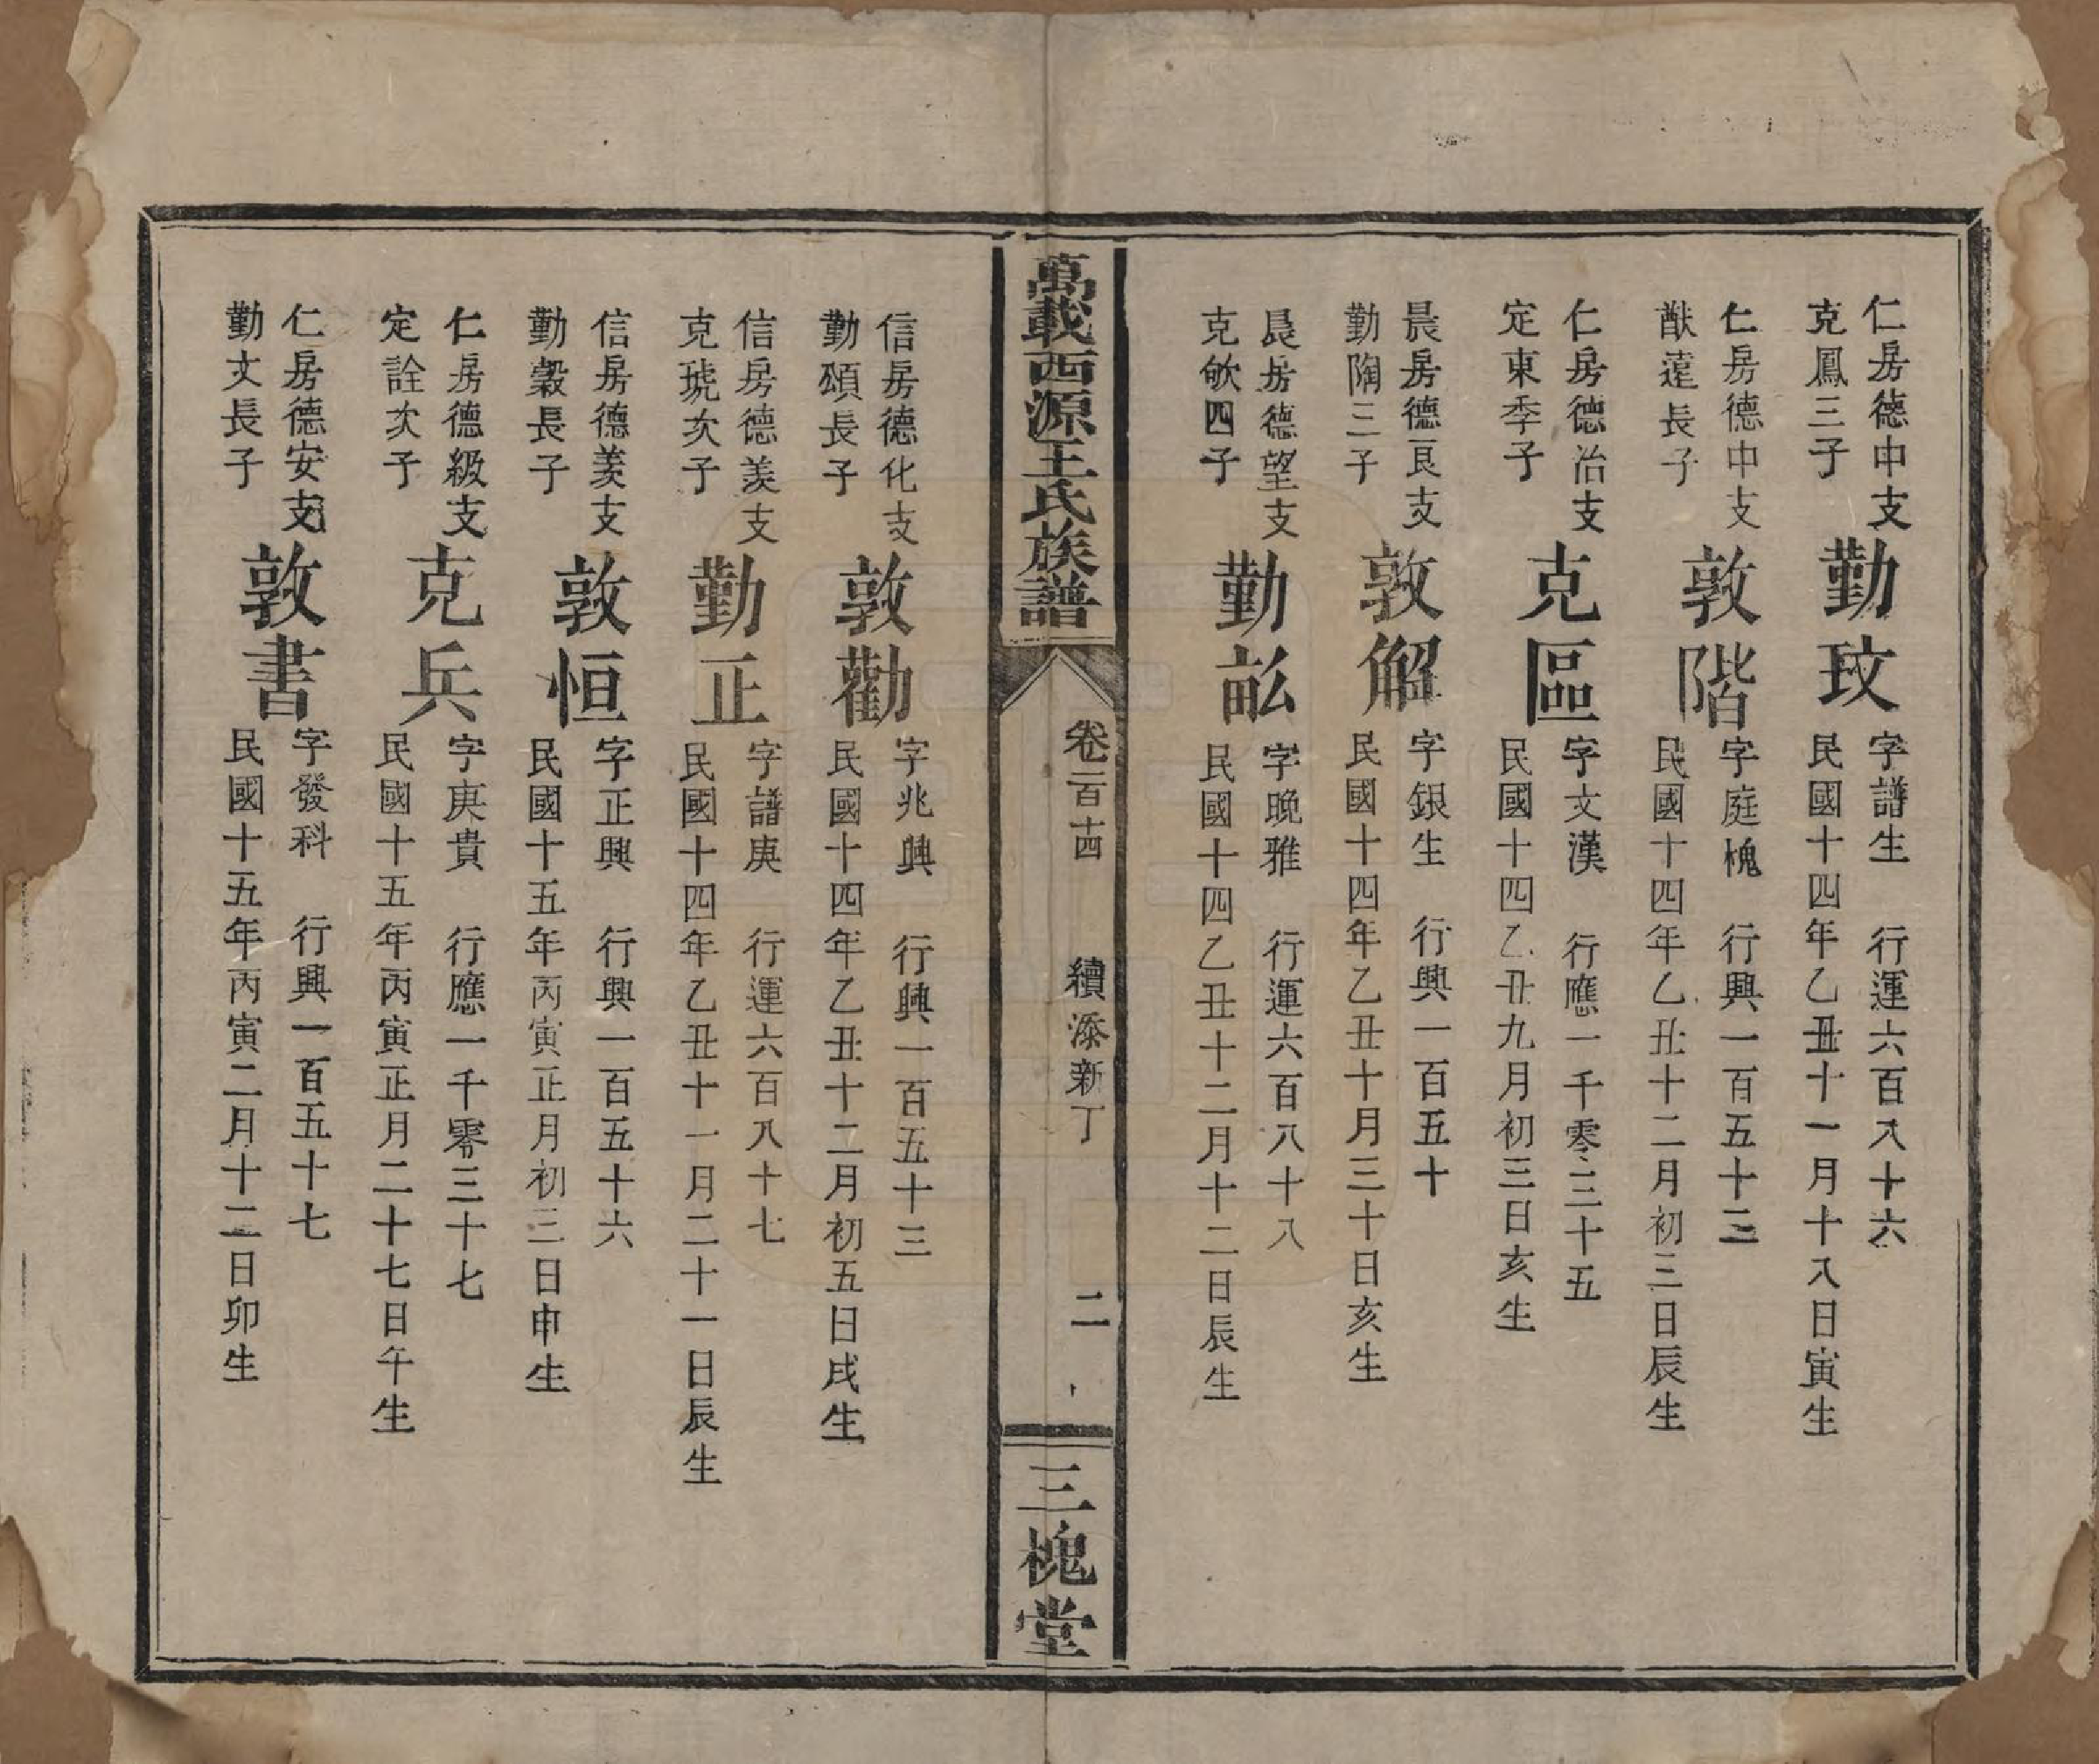 仁房德中支
克鳳三子
勤玟
字譜生　行運六百八十六
民國十四年乙丑十一月十八日寅生
仁房德中支
猷蓬長子
敦階
字庭槐　行興一百五十二
民國十四年乙丑十二月初三日辰生
仁房德治支
定東季子
克區
字文漢　行應一千零三十五
民國十四乙丑九月初三日亥生
晨房德艮支
勤陶三子
敦解
字銀生　行興一百五十
民國十四年乙丑十月三十日亥生
晨房德望支
克欨四子
勤訟
字晚雅　行運六百八十八
民國十四乙丑十二月十二日辰生
萬載西源王氏族譜
卷二百十四
續添新丁
二
三槐堂
信房德化支
勤碩長子
敦勸
字兆興　行興一百五十三
民國十四年乙丑十二月初五日戌生
信房德羨支
克琥次子
勤正
字譜庚　行運六百八十七
民國十四年乙丑十一月二十一日辰生
信房德羨支
勤縠長子
敦恒
字正興　行興一百五十六
民國十五年丙寅正月初三日申生
仁房德級支
定詮次子
克兵
字庚貴　行應一千零三十七
民國十五年丙寅正月二十七日午生
仁房德安支
勤文長子
敦書
字發科　行興一百五十七
民國十五年丙寅二月十二日卯生